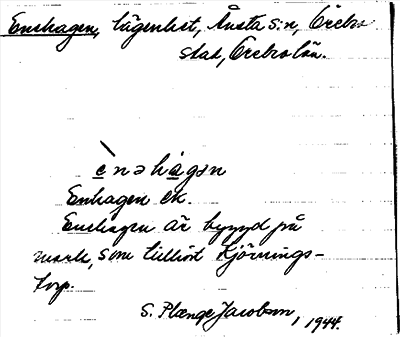 Enehagen, lägenhet, Ånsta s:n, Örebro
stad, Örebro län.
ènəhágən
Enhagen ek.
Enehagen är byggd på
mark, som tillhört Hjörnings-
torp.
S. Plænge Jacobson, 1944.